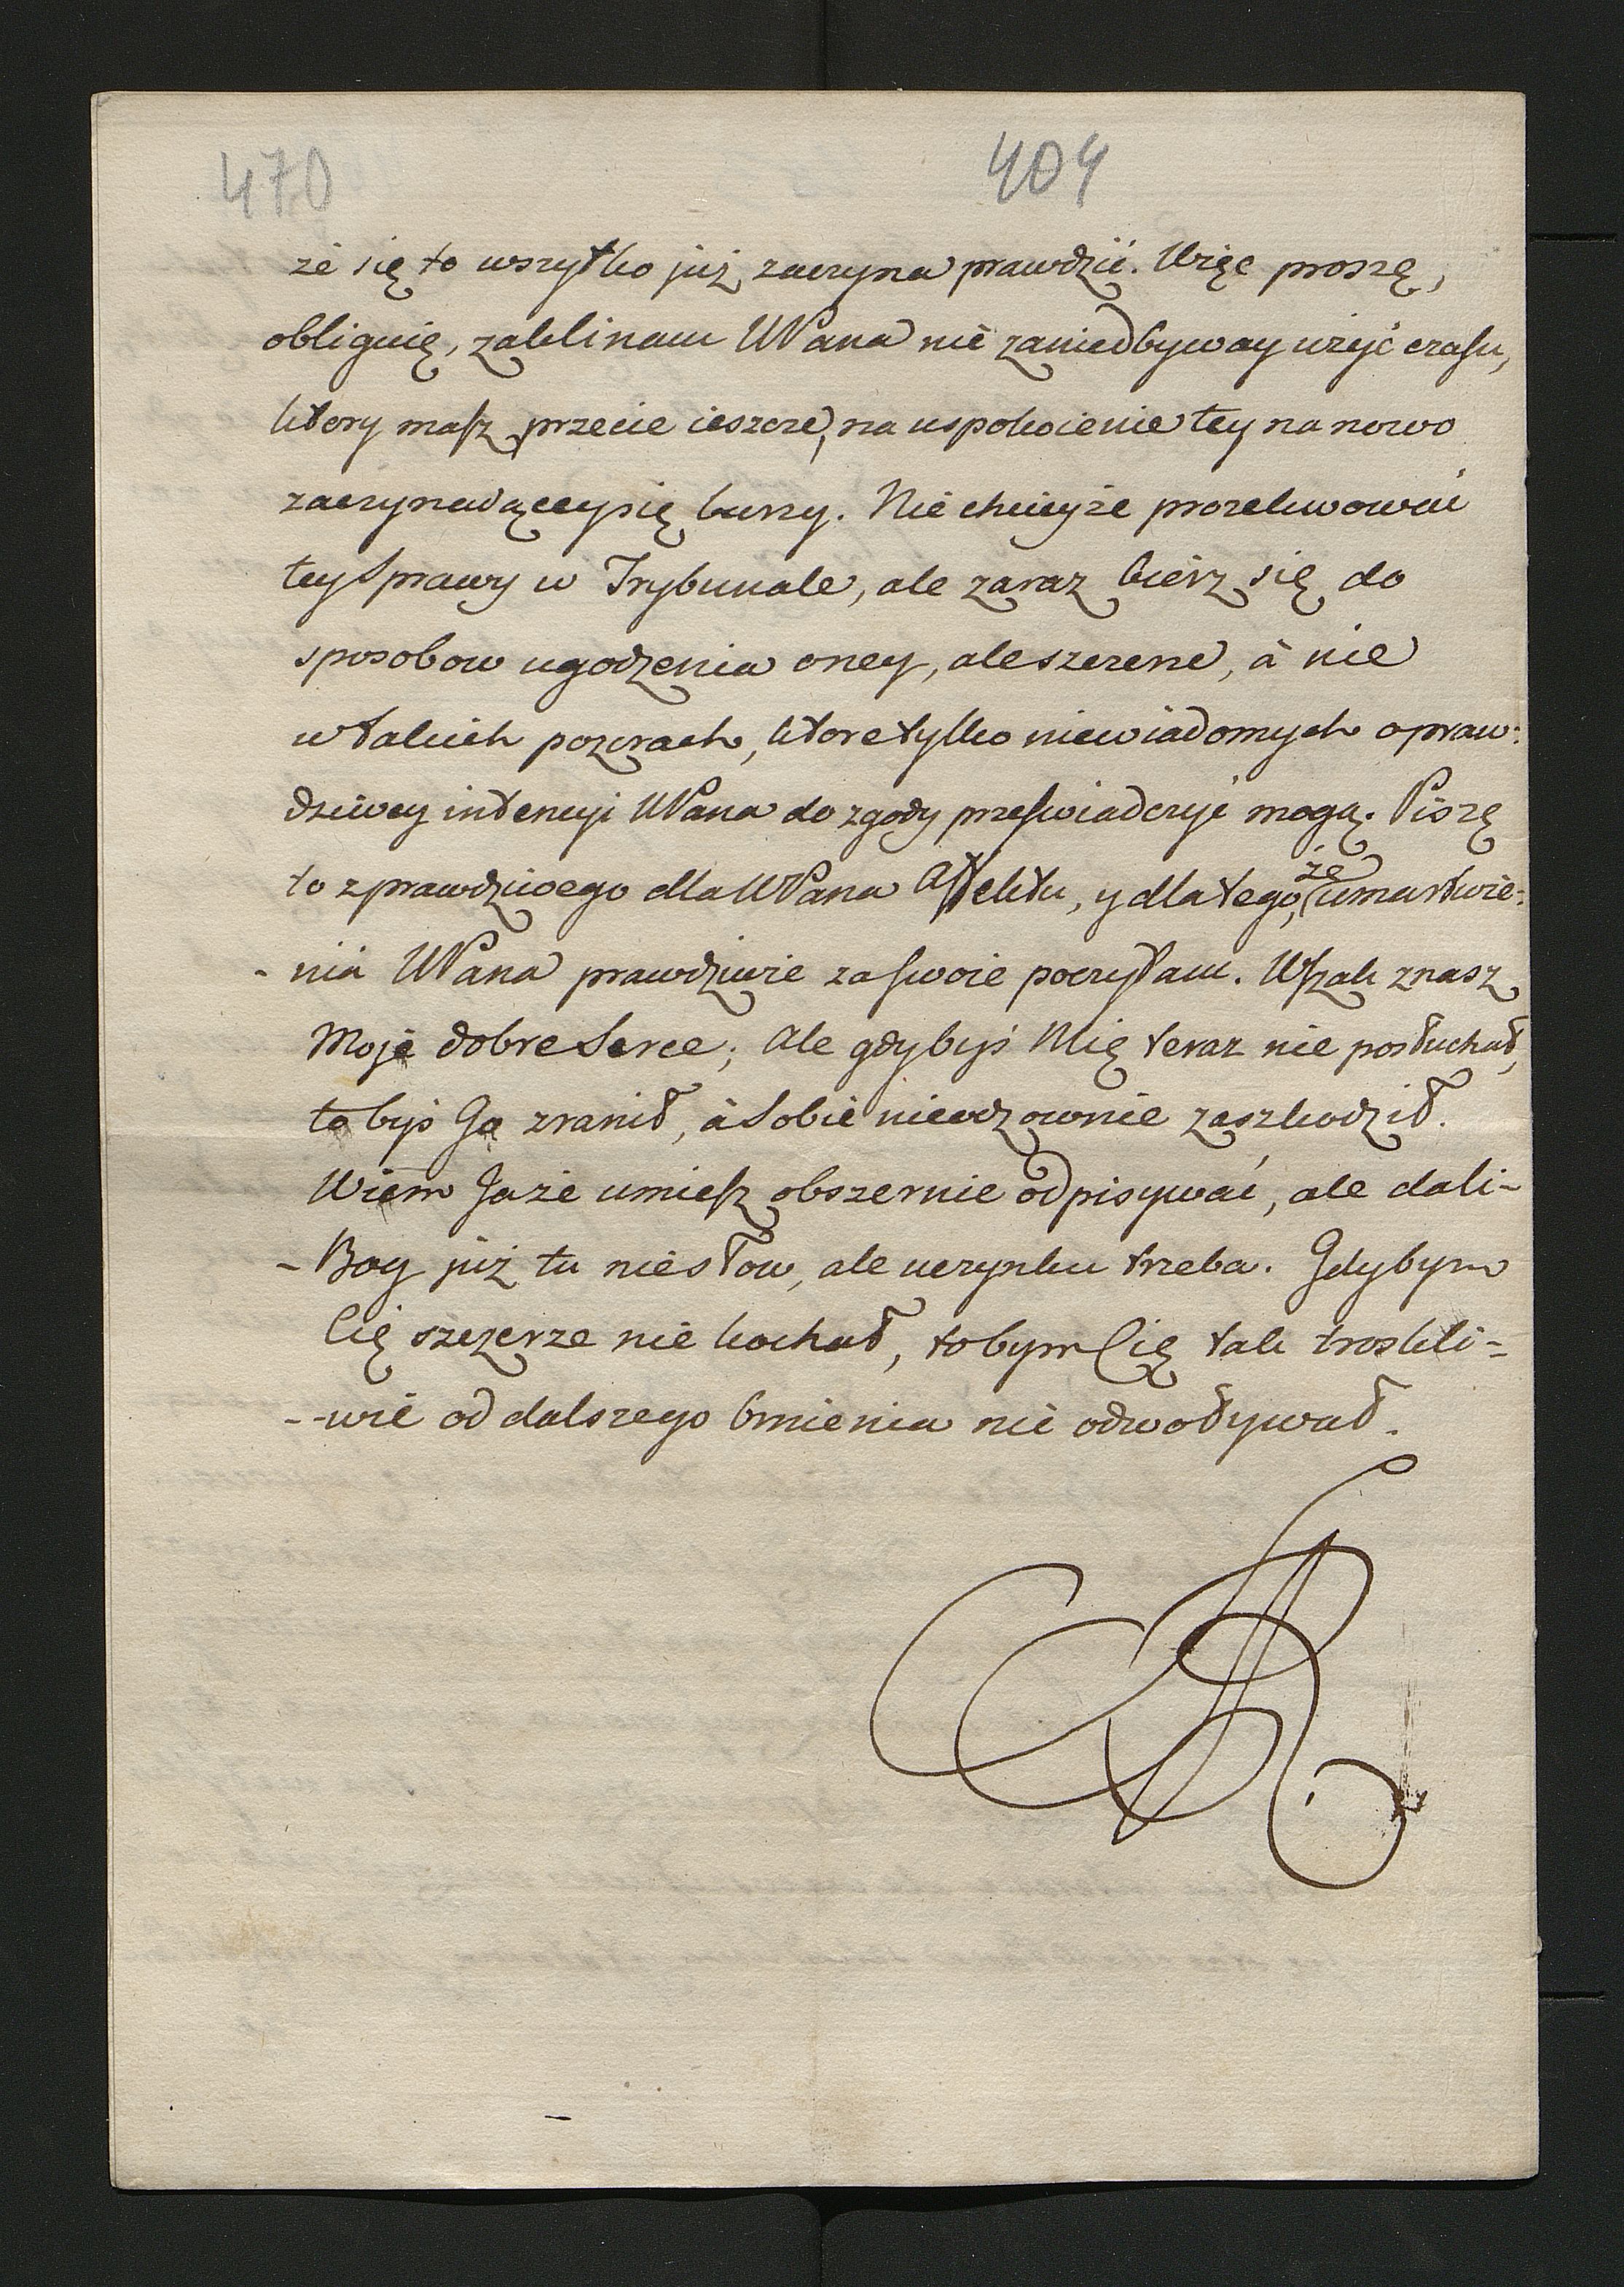 470
404
że się to wszystko już zaczyna prawdzić. Więc proszę,
obliguię, zaklinam WPana nie zaniedbyway użyć czasu,
ktory masz przecie ieszcze, na uspokoienie tey na nowo
zaczynaiącey się burzy. Nie chciey że prosekwować
tey Sprawy w Trybunale, ale zaraz bierz się do
sposobow ugodzenia oney, ale szczere, à nie
w takich pozorach, ktore tylko niewiadomych o praw:
dziwey intencyi WPana do zgody przeswiadczyć mogą. Piszę
to z prawdziwego dla WPana Affektu, y dla tego, że umartwie:
- nia WPana prawdziwie za swoie poczytam. Wszak znasz
Moje dobre Serce; Ale gdybyś Mię teraz nie posłuchał,
to byś Go zranił, à Sobie nieodzownie zaszkodził.
Wiem Ja że umiesz obszernie odpisywać, ale dali-
- Bog już tu nie słow, ale uczynku trzeba. Gdybym
Cię szczerze nie kochał, to bym Cię tak troskli=
--wie od dalszego brnienia nie odwoływał.
SAR